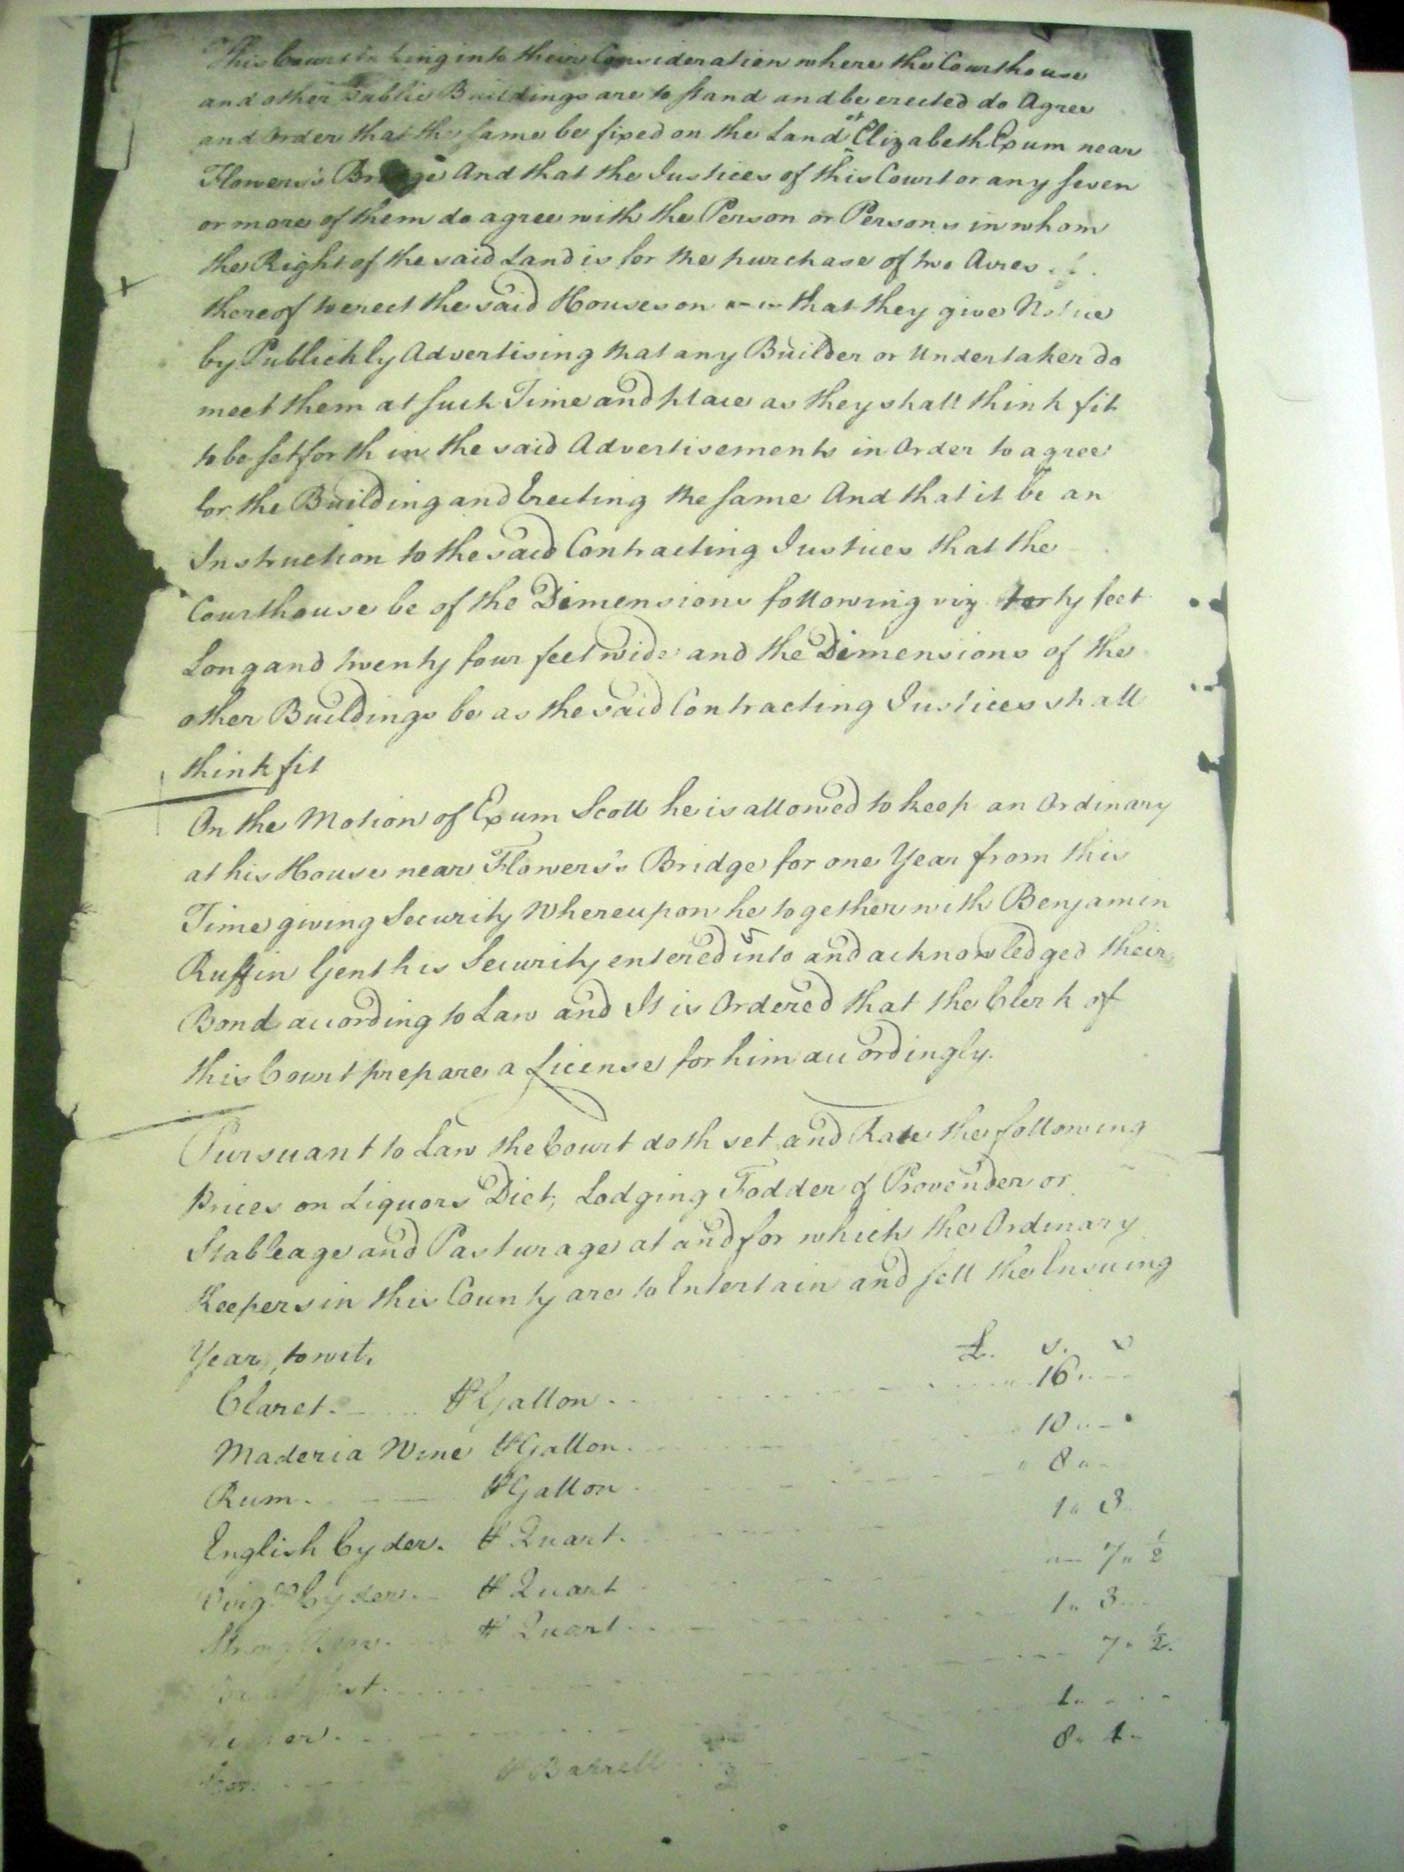 This Court taking into their Consideration where the Courthouse
and other Public Buildings are to stand and be erected do Agree
and Order that the same be fixed on the Land of Elizabeth Exum near
Flowers's Bridge And that the Justices of this Court or any seven
or more of them do agree with the Person or Persons in whom
the Right of the said Land is for the purchase of two Acres
thereof to erect the said Houses on that they give Notice
by Publickly Advertising that any Builder or Undertaker do
meet them at such Time and place as they shall think fit
to be set forth in the said Advertisements in Order to agree
for the Building and Erecting the same And that it be an
Instruction to the said Contracting Justices that the
Courthouse be of the Dimensions following viz forty feet
Long and twenty four feet wide and the Dimensions of the
other Buildings be as the said Contracting Justices shall
think fit
On the Motion of Exum Scott he is allowed to keep an Ordinary
at his House near Flowers's Bridge for one Year from this
Time giving Security Whereupon he together with Benjamin
Ruffin Gent his Security entered into and acknowledged their
Bond according to Law and It is Ordered that the Clerk of
this Court prepare a License for him accordingly.
Pursuant to Law the Court doth set and Rate the following
Prices on Liquors Diet, Lodging Fodder & Provender or
Stableage and Pasturage at and for which the Ordinary
Keepers in this County are to Entertain and sell the Ensuing
Year, to wit.
£. s.
Claret. ⅌ Gallon. 16
Maderia Wine ⅌ Gallon. 10
Rum. ⅌ Gallon 8
English Cyder. ⅌ Quart. 1 3
Virg.a Cyder. ⅌ Quart 7 ½
Strong Beer. ⅌ Quart. 1 3
7 ½
1
⅌ Barrell 8